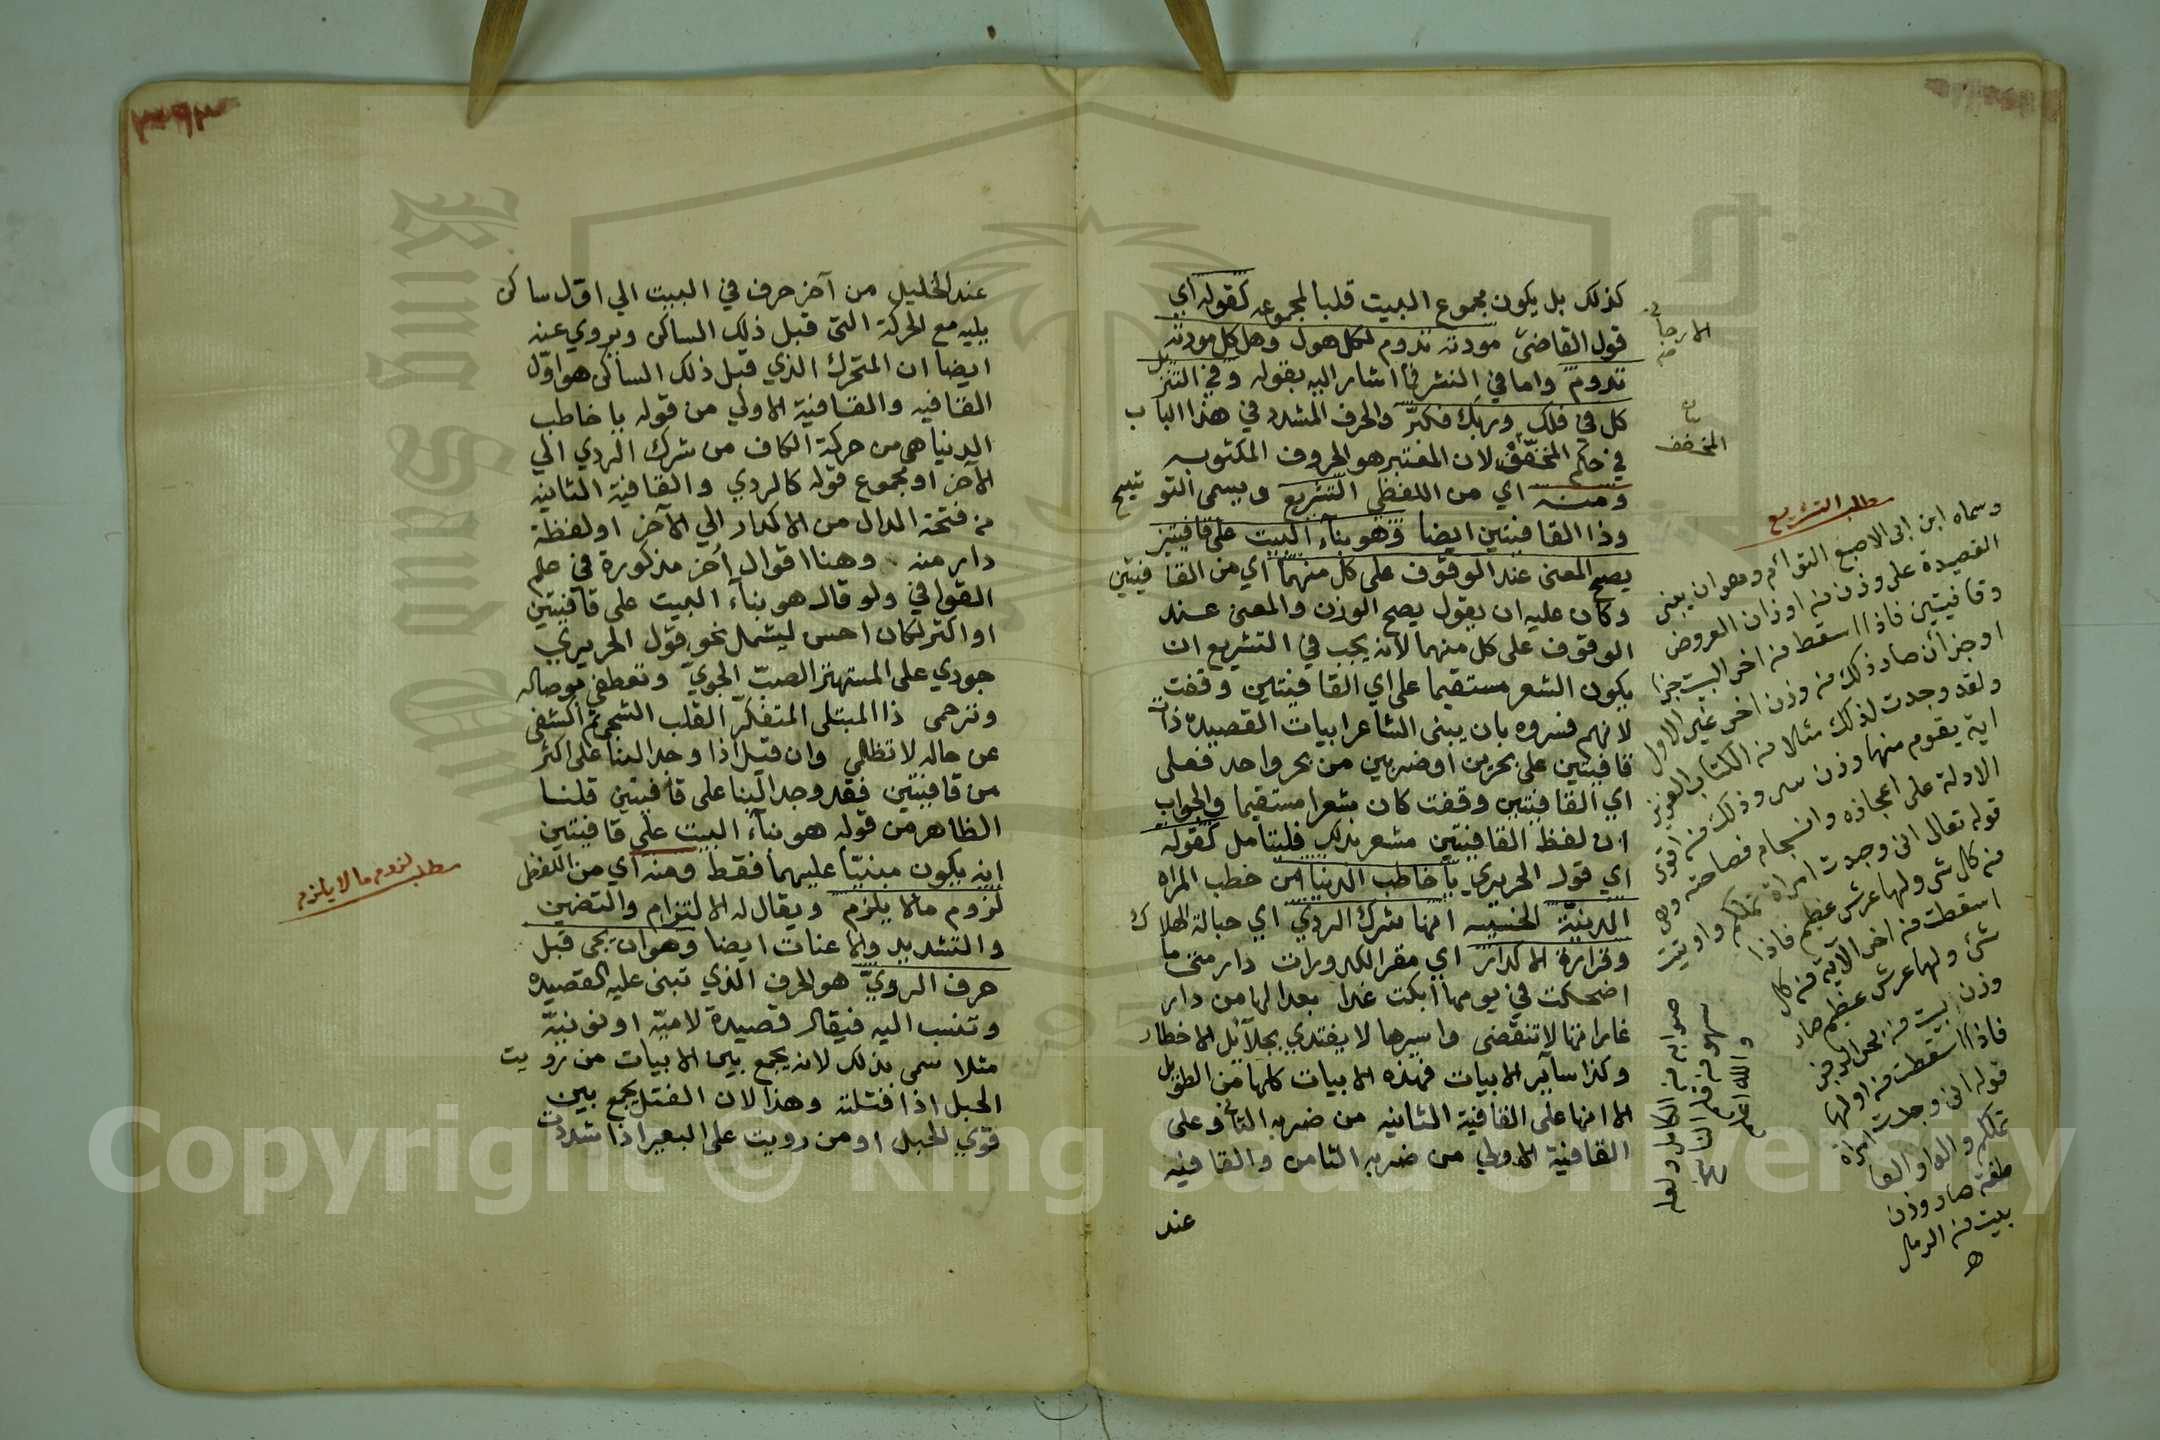 كذلك بل يكون مجموع البيت قلبا لمجموعه كقوله اي
قول القاضي مودته تدوم لكل هول وهل كل مودته
تدوم واما في النثر فما اشار اليه بقوله وفي التنزيل
كل في فلك وربك فكبر والحرف المشدد في هذا الباب
في حكم المخفف لان المعتبر هو الحروف المكتوبه
ومنه اي من اللفظي التشريع ويسمى التوشيح
وذا القافيتين ايضا وهو بناء البيت على قافيتين
يصح المعنى عند الوقوف على كل منهما اي من القافيتين
وكان عليه ان يقول يصح الوزن والمعنى عند
الوقوف على كل منهما لانه يجب في التشريع ان
يكون الشعر مستقيما على اي القافيتين وقفت
لانهم فسروه بان يبنى الشاعر ابيات القصيده ذات
قافيتين على بحرين او ضربين من بحر واحد فعلى
اي القافيتين وقفت كان شعرا مستقيما والجواب
ان لفظ القافيتين مشعر بذلك فليتامل كقوله
اي قول الحريري يا خاطب الدنيا من خطب المراه
الدنية الخسيسه انها شرك الردي اي حبالة الهلاك
وقرارة الاكدار اي مقر الكدورات دار متى ما
اضحكت في يومها ابكت غدا بعدا لها من دار
غاراتها لا تنقضي واسيرها لا يفتدي بجلائل الاخطار
وكذا سائر الابيات فهذه الابيات كلها من الطويل
الا انها على القافية الثانيه من ضربه الثاني وعلى
القافية الاولي من ضربه الثامن والقافيه
عند
الارجاني
المخفف
مطلب التشريع
وسماه ابن ابى الاصبع التوأم وهو ان يبنى
القصيدة على وزن من اوزان العروض
وقافيتين فاذا اسقط من اخر البيت جزا
او جزأن صار ذلك من وزن اخر غير الاول
ولقد وجدت لذلك مثلا من الكتاب العزيز
اية يقوم منها وزن وذلك من اقوى
الادلة على اعجازه وانسجام فصاحته وهى
قوله تعالى انى وجدت امراة تملكهم واوتيت
من كل شئ ولها عرش عظيم فاذا
اسقطت من اخر الآية من كل
شئ ولها عرش عظيم صار
وزن بيت من بحر الرجز
فاذا اسقطت من اولها
قوله انى وجدت امراة
تملكهم والواو العا
طفة صار وزن
بيت من الرمل
ه
صوابه من الكامل ولعله
سهو من قلم الناسخ
والله اعلم
عند الخليل من آخر حرف في البيت الي اول ساكن
يليه مع الحركة التي قبل ذلك الساكن ويروي عنه
ايضا ان المتحرك الذي قبل ذلك الساكن هو اول
القافيه والقافية الاولي من قوله يا خاطب
الدنيا هي من حركة الكاف من شرك الردي الي
الآخر او مجموع قوله كالردي والقافية الثانيه
من فتحة الدال من الاكدار الي الآخر او لفظة
دار منه وهنا اقوال أخر مذكورة في علم
القوافي ولو قال هو بناء البيت على قافيتين
او اكثر لكان احسن ليشمل نحو قول الحريري
جودي على المستهتر الصب الجوي وتعطفي بوصاله
وترحمى ذا المبتلى المتفكر القلب الشجي ثم اكشفى
عن حاله لا تظلمي وان قيل اذا وجد البنا على اكثر
من قافيتين فقد وجد البنا على قافيتين قلنا
الظاهر من قوله هو بناء البيت على قافيتين
انه يكون مبنيّا عليهما فقط ومنه اي من اللفظي
لزوم مالا يلزم ويقال له الالتزام والتضمين
والتشديد والاعنات ايضا وهو ان يجى قبل
حرف الرويّ هو الحرف الذي تبنى عليه القصيده
وتنسب اليه فيقال قصيدة لاميّه او نونيّه
مثلا سمى بذلك لانه يجمع بين الابيات من رويت
الحبل اذا فتلته وهذا لان الفتل يجمع بين
قوي الحبل او من رويت على البعير اذا شددت
مطلب لزوم مالا يلزم
King Saud University
Copyright © King Saud University